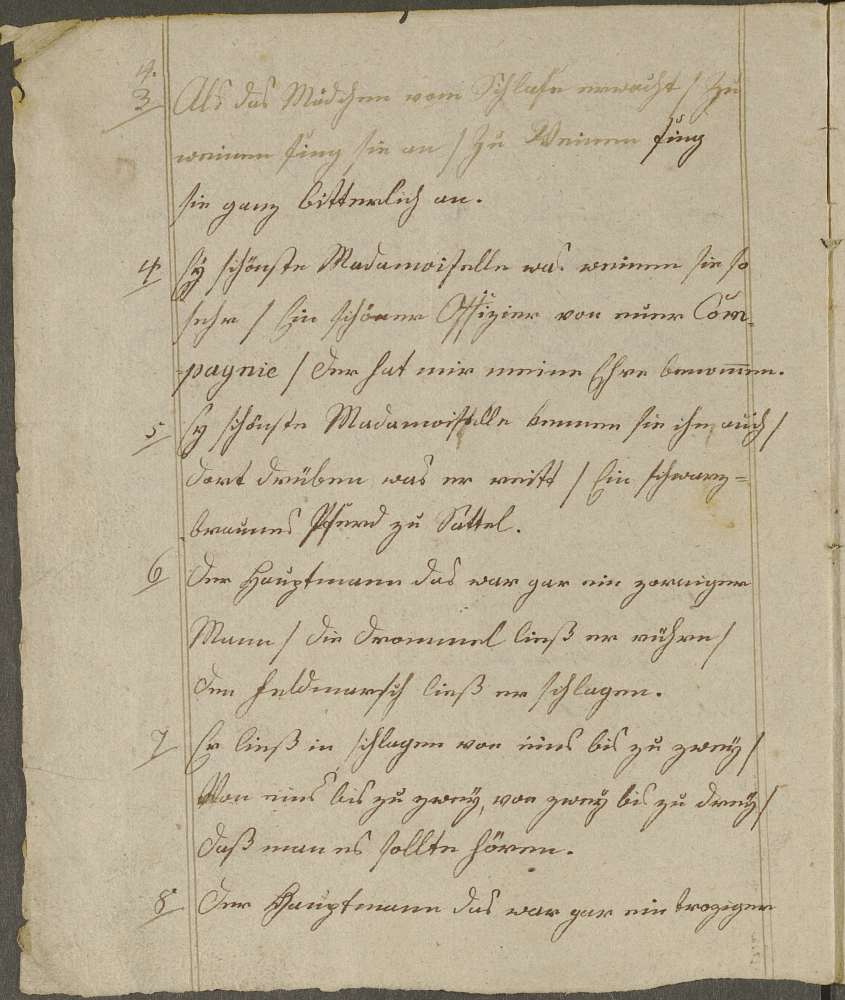 4.
3 Als das Mädchen vom Schlafe erwacht / Zu
weinen fing sie an / Zu Weinen fing
sie ganz bitterlich an.
4 Ey schönste Madamoiselle was weinen sie so
sehr / Ein schöner Offizier von euer Com-
pagnie / der hat mir meine Ehre benom̄en.
5 Ey schönste Madamoiselle kennen sie ihn auch /
dort drüben was er reist / Ein schwarz=
braunes Pferd zu Sattel.
6 Der Hauptmann das war gar ein zorniger
Mann / die Drommel ließ er rühren /
den Feldmarsch ließ er schlagen.
7 Er ließ in schlagen von eins bis zu zweÿ /
Von eins bis zu zweÿ, von zweÿ bis zu dreÿ /
daß man es sollte hören.
8 Der Hauptmann das war gar ein troziger